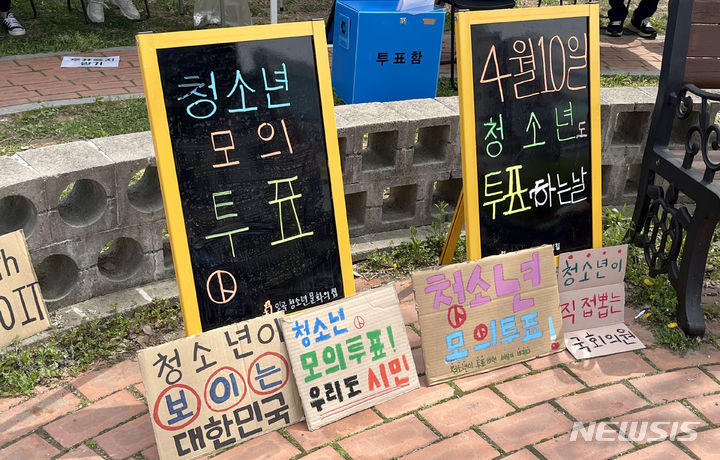 투표용지
받기
투표함
청소년
모의
투표
일곡 청소년문화의집
4월10일
청소년도
투표하는날
청소년이
보이는
대한민국
청소년
모의투표!
우리도 시민
청소년
모의투표!
청소년이
직접뽑는
국회의원
NEWSIS